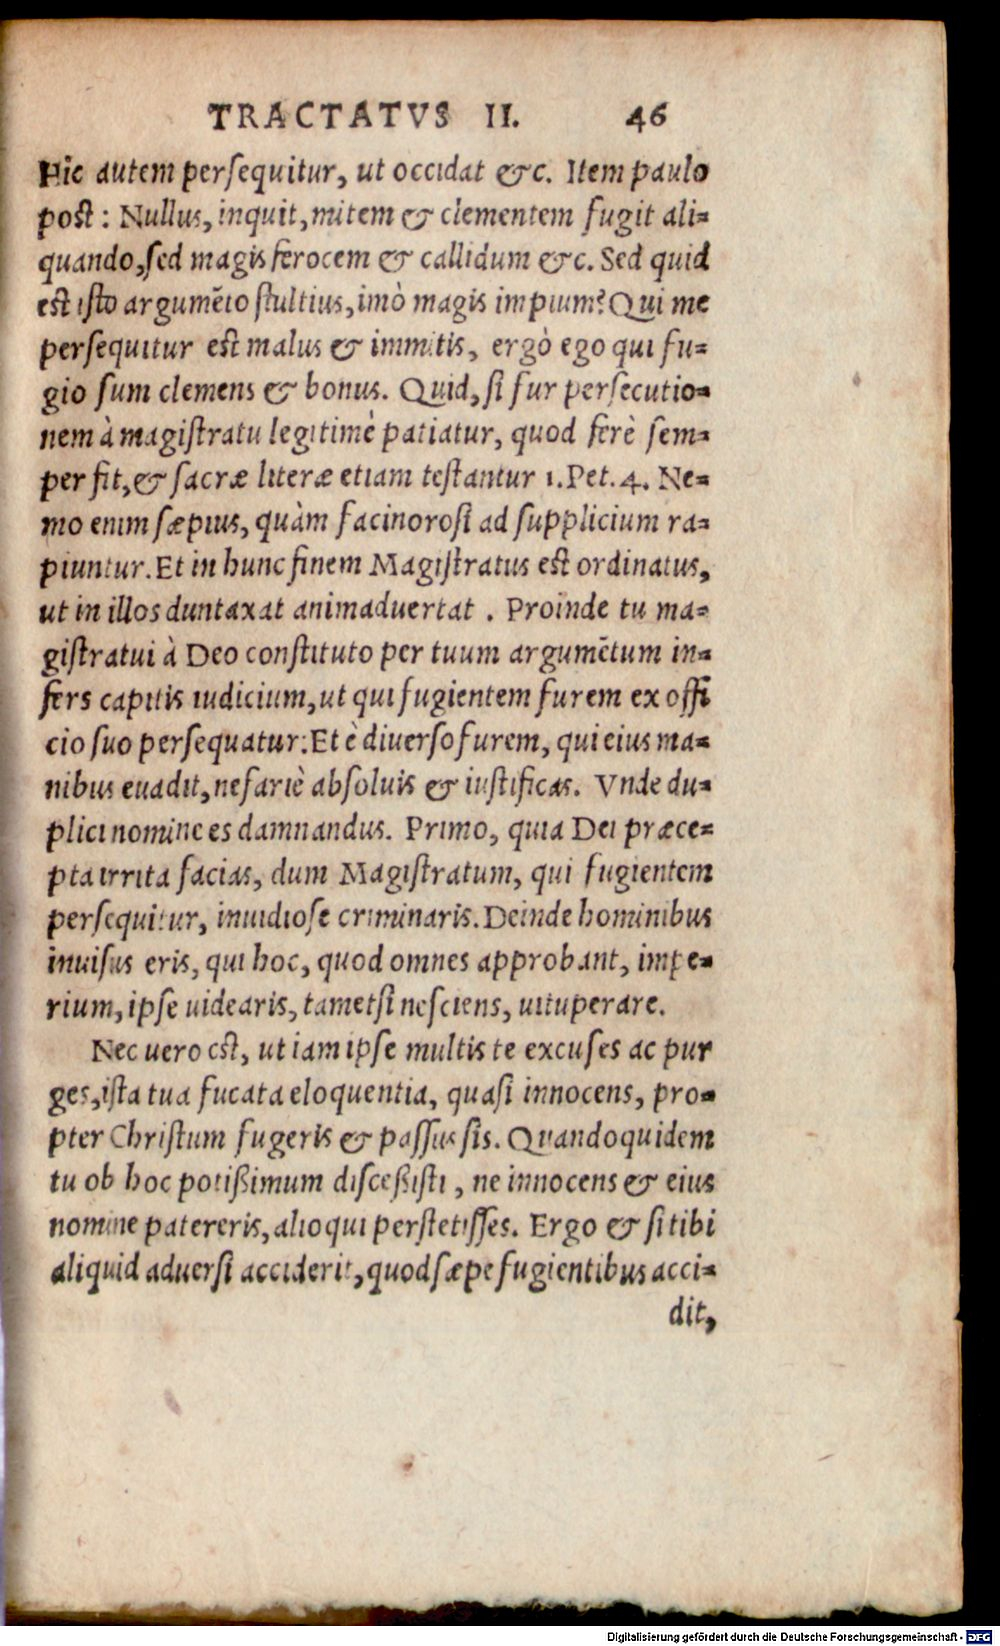 TRACTATVS II. 46
Hîc autem persequitur, ut occidat & c. Item paulo
post : Nullus, inquit, mitem & clementem fugit ali=
quando, sed magis ferocem & callidum & c. Sed quid
est isto argumẽto stultius, imò magis impium? Qui me
persequitur est malus & immitis, ergò ego qui fu=
gio sum clemens & bonus. Quid, si fur persecutio=
nem à magistratu legitimè patiatur, quod ferè sem=
per fit, & sacræ literæ etiam testantur 1. Pet. 4. Ne=
mo enim sæpius, quàm facinorosi ad supplicium ra=
piuntur. Et in hunc finem Magistratus est ordinatus,
ut in illos duntaxat animaduertat . Proinde tu ma=
gistratui à Deo constituto per tuum argumẽtum in=
fers capitis iudicium, ut qui fugientem furem ex offi
cio suo persequatur: Et è diuerso furem, qui eius ma=
nibus euadit, nefariè absoluis & iustificas. Vnde du=
plici nomine es damnandus. Primo, quia Dei præce=
pta irrita facias, dum Magistratum, qui fugientem
persequitur, inuidiose criminaris. Deinde hominibus
inuisus eris, qui hoc, quod omnes approbant, impe=
rium, ipse uidearis, tametsi nesciens, uituperare.
Nec uero est, ut iam ipse multis te excuses ac pur
ges, ista tua fucata eloquentia, quasi innocens, pro=
pter Christum fugeris & passus sis. Quandoquidem
tu ob hoc potißimum disceßisti, ne innocens & eius
nomine patereris, alioqui perstetisses. Ergo & si tibi
aliquid aduersi acciderit, quod sæpe fugientibus acci=
dit,
Digitalisierung gefördert durch die Deutsche Forschungsgemeinschaft - DFG